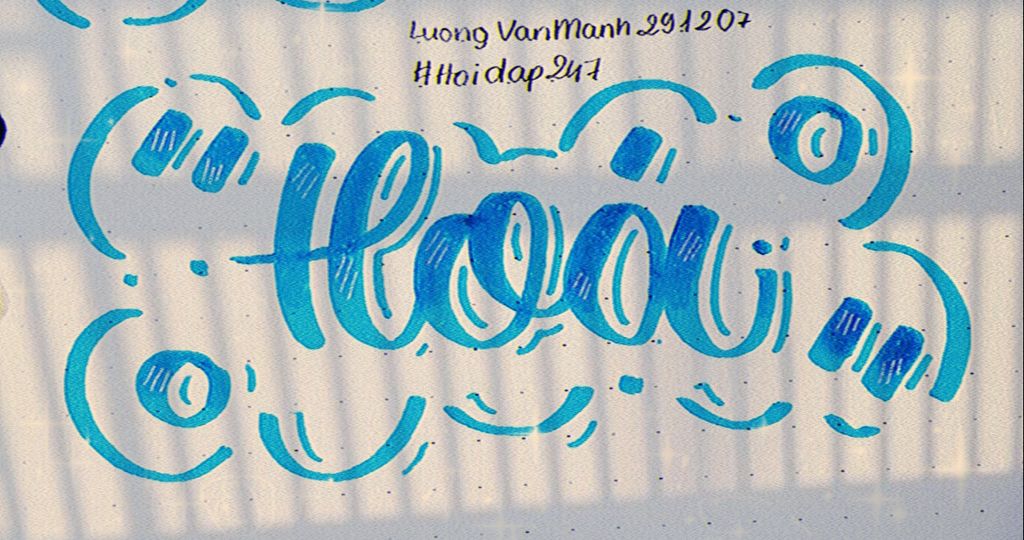 Luong Van Manh 291207
#Hoidap247
Hoa